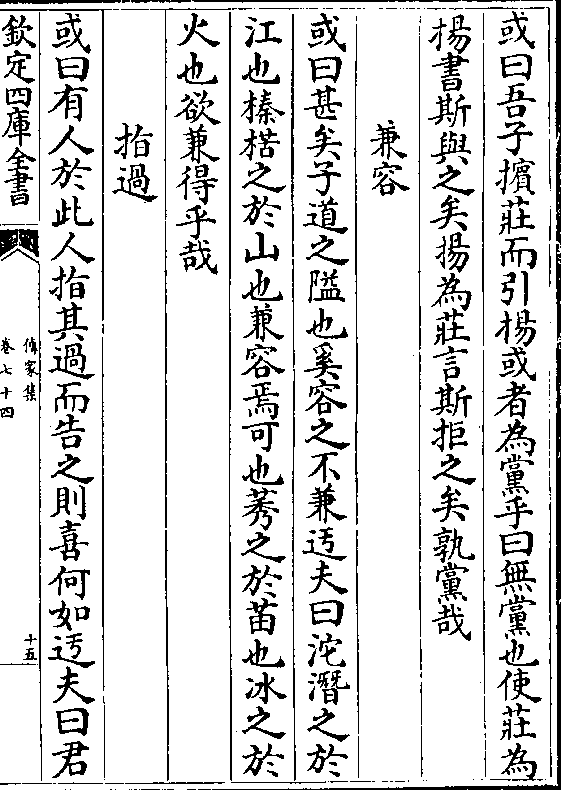 或曰吾子擯莊而引揚或者為黨乎曰無黨也使莊為
楊書斯與之矣揚為莊言斯拒之矣孰黨哉
兼容
或曰甚矣子道之隘也奚容之不兼迃夫曰沱潛之於
江也榛楛之於山也兼容焉可也莠之於苗也冰之於
火也欲兼得乎哉
指過
或曰有人於此人指其過而告之則喜何如迃夫曰君
欽定四庫全書
傳家集
卷七十四
十五